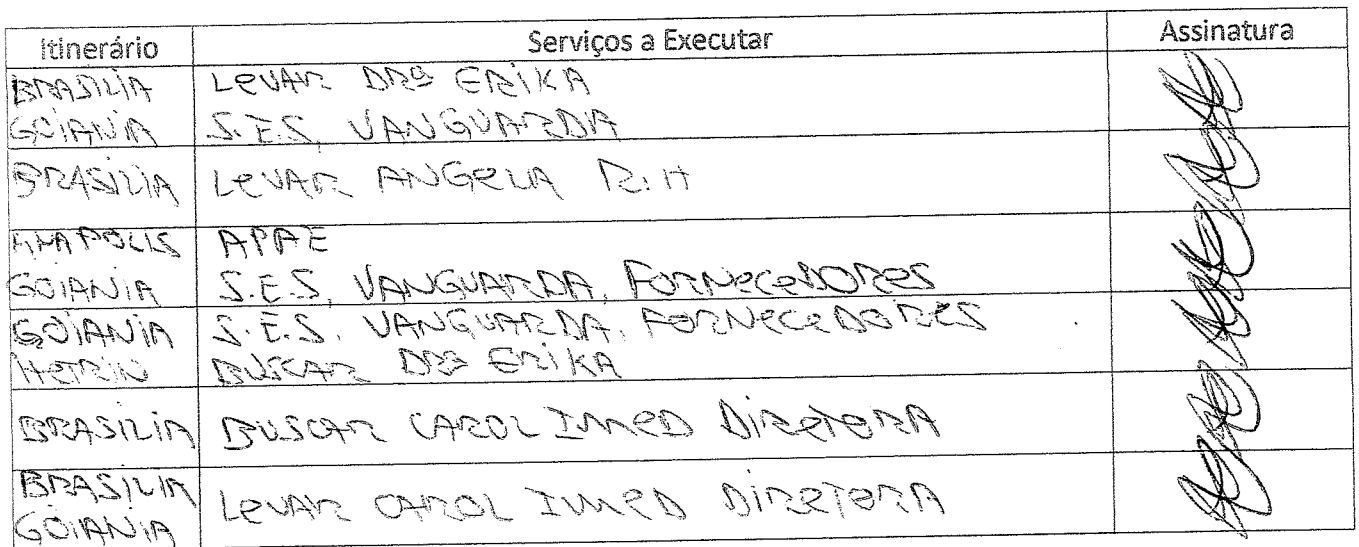 Itinerário Serviços a Executar Assinatura
BRASILIA LEVAR DRª ERIKA
GOIANIA S.E.S, VANGUARDA
BRASILIA LEVAR ANGELA R.H
ANAPOLIS APAE
GOIANIA S.E.S, VANGUARDA, FORNECEDORES
GOIANIA S.E.S, VANGUARDA, FORNECEDORES
HETRIN BUSCAR DRª ERIKA
BRASILIA BUSCAR CAROL IMED DIRETORA
BRASILIA
LEVAR CAROL IMED DIRETORA
GOIANIA